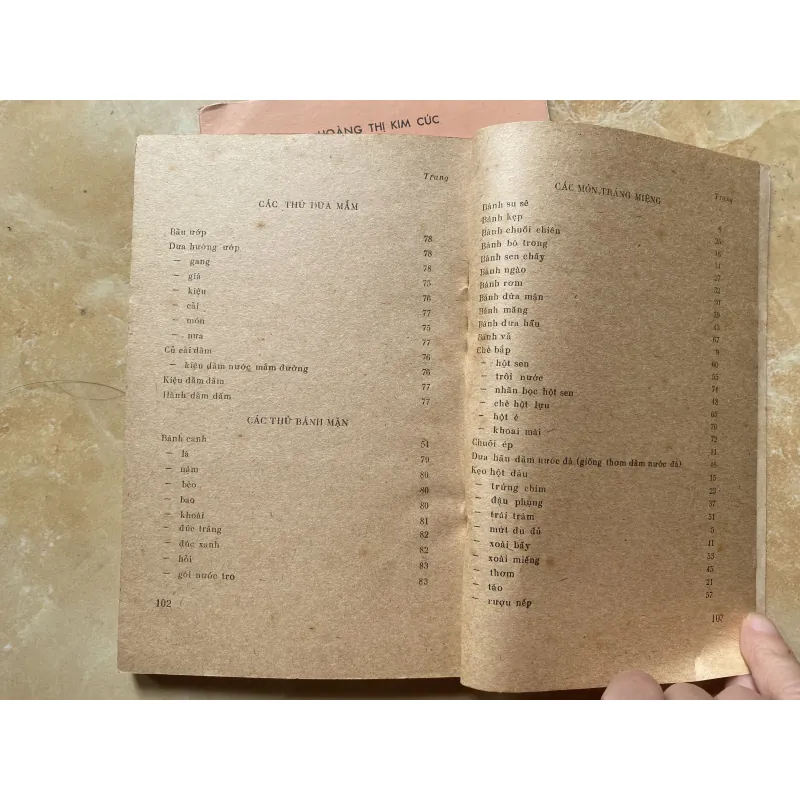 HOÀNG THỊ KIM CÚC
Trang
CÁC THỨ DƯA MẮM
Bầu ướp 78
Dưa hường ướp 78
— gang 78
— giá 75
— kiệu 76
— cải 77
— món 75
— nưa 77
Củ cải dầm 76
— kiệu dầm nước mắm đường 76
Kiệu dầm dấm 77
Hành dầm dấm 77
CÁC THỨ BÁNH MẶN
Bánh canh 54
— lá 79
— nậm 80
— bèo 80
— bao 80
— khoài 81
— đúc trắng 82
— đúc xanh 82
— hỏi 83
— gói nước tro 83
102
CÁC MÓN TRÁNG MIỆNG
Trang
Bánh su sê
Bánh kẹp
Bánh chuối chiên
Bánh bó trong
Bánh sen chấy
Bánh ngào
Bánh rơm
Bánh dứa mận
Bánh măng
Bánh dưa hấu
Bánh vả
Chè bắp
— hột sen
— trôi nước
— nhãn bọc hột sen
— chè hột lựu
— hột é
— khoai mài
Chuối ép
Dưa hấu dầm nước đá (giống thơm dầm nước đá)
Kẹo hột dẻ
— trứng chim
— đậu phụng
— trái trám
— mứt đu đủ
— xoài bẩy
— xoài miếng
— thơm
— táo
— rượu nếp